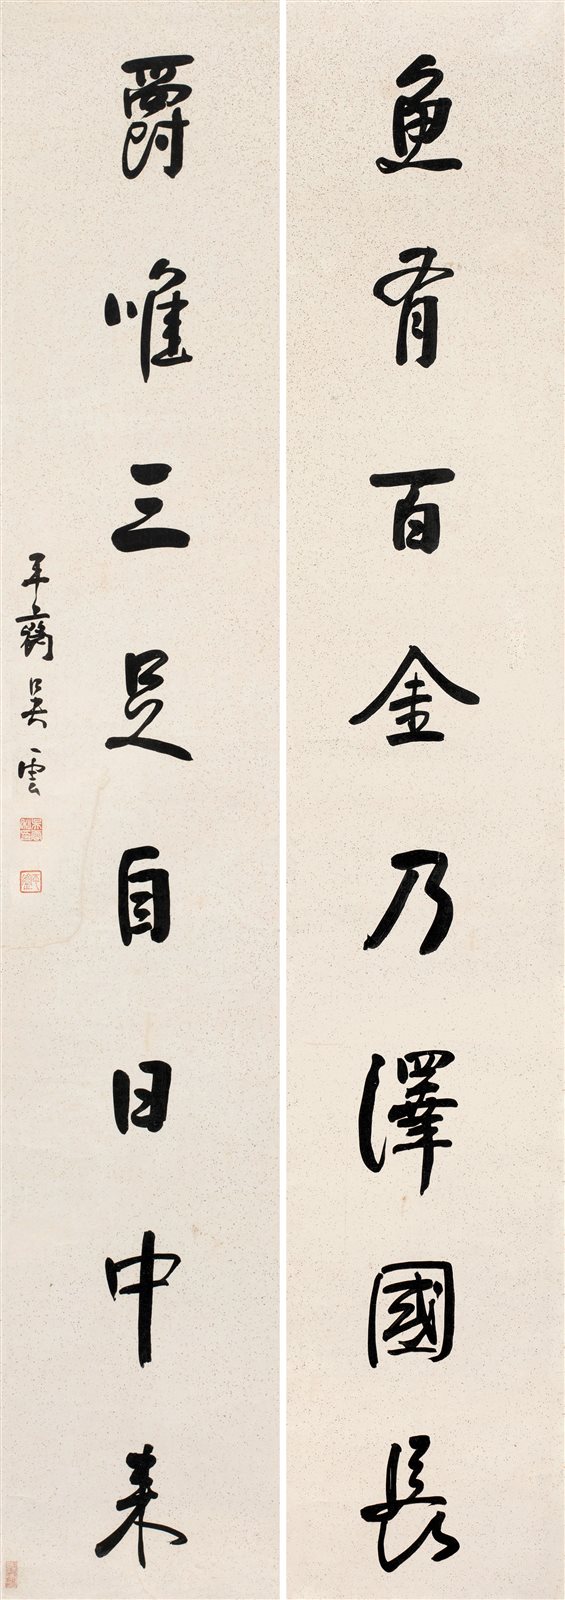 魚有百金乃澤國長
爵唯三足自日中來
平齋吳雲